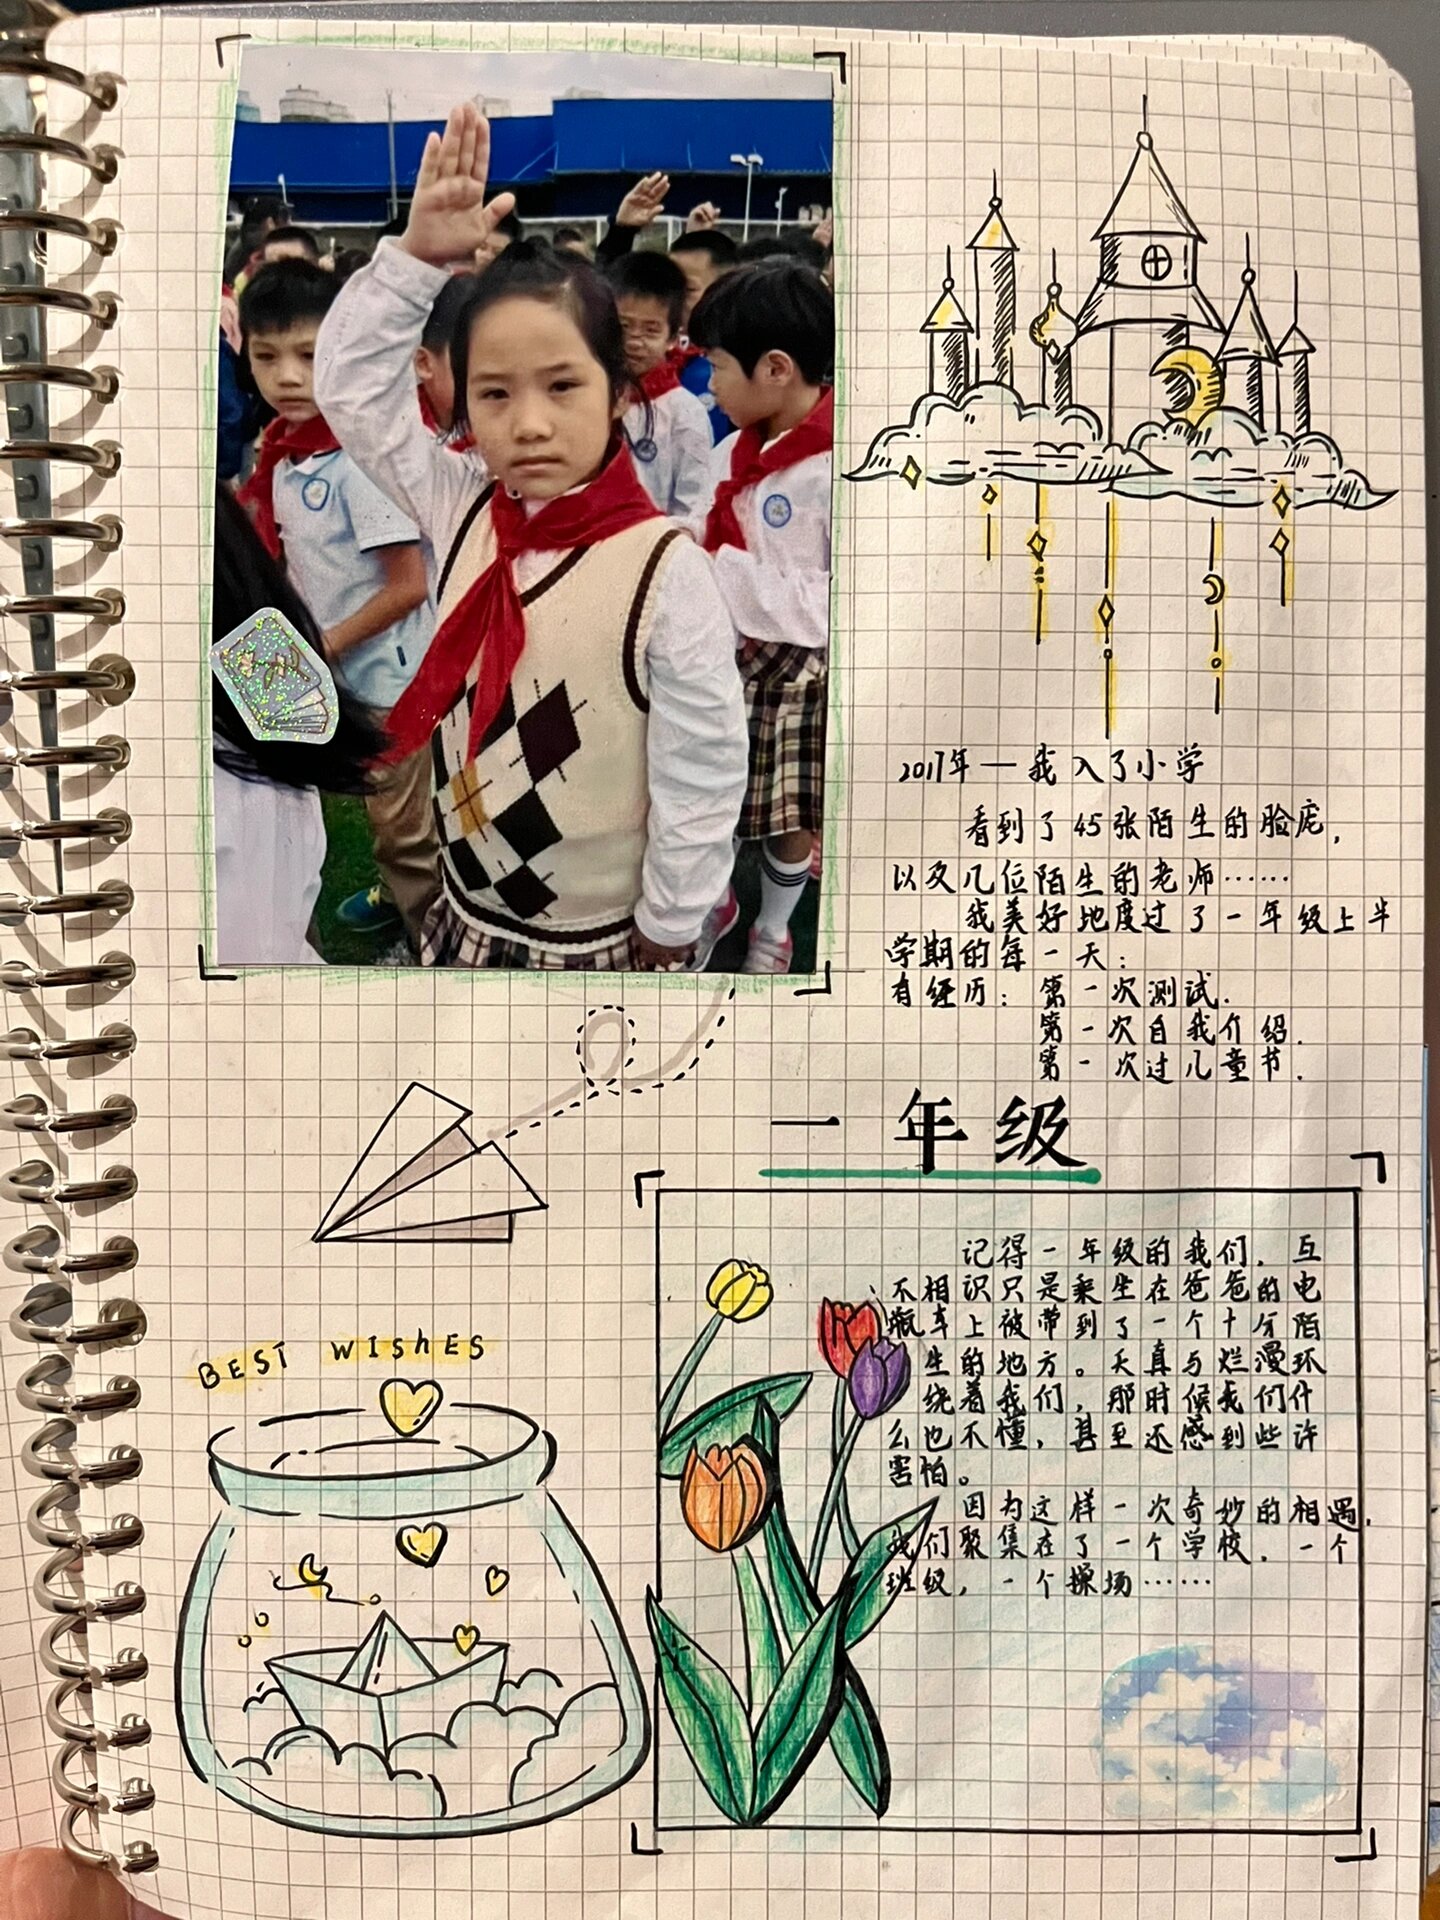 2017年—我入了小学
看到了45张陌生的脸庞，
以及几位陌生的老师……
我美好地度过了一年级上半
学期的每一天：
有经历：第一次测试．
第一次自我介绍．
第一次过儿童节．
一年级
记得一年级的我们，互
不相识只是乘坐在爸爸的电
瓶车上被带到了一个十分陌
生的地方。天真与烂漫环
绕着我们，那时候我们什
么也不懂，甚至还感到些许
害怕。
因为这样一次奇妙的相遇，
我们聚集在了一个学校，一个
班级，一个操场……
BEST WIShES